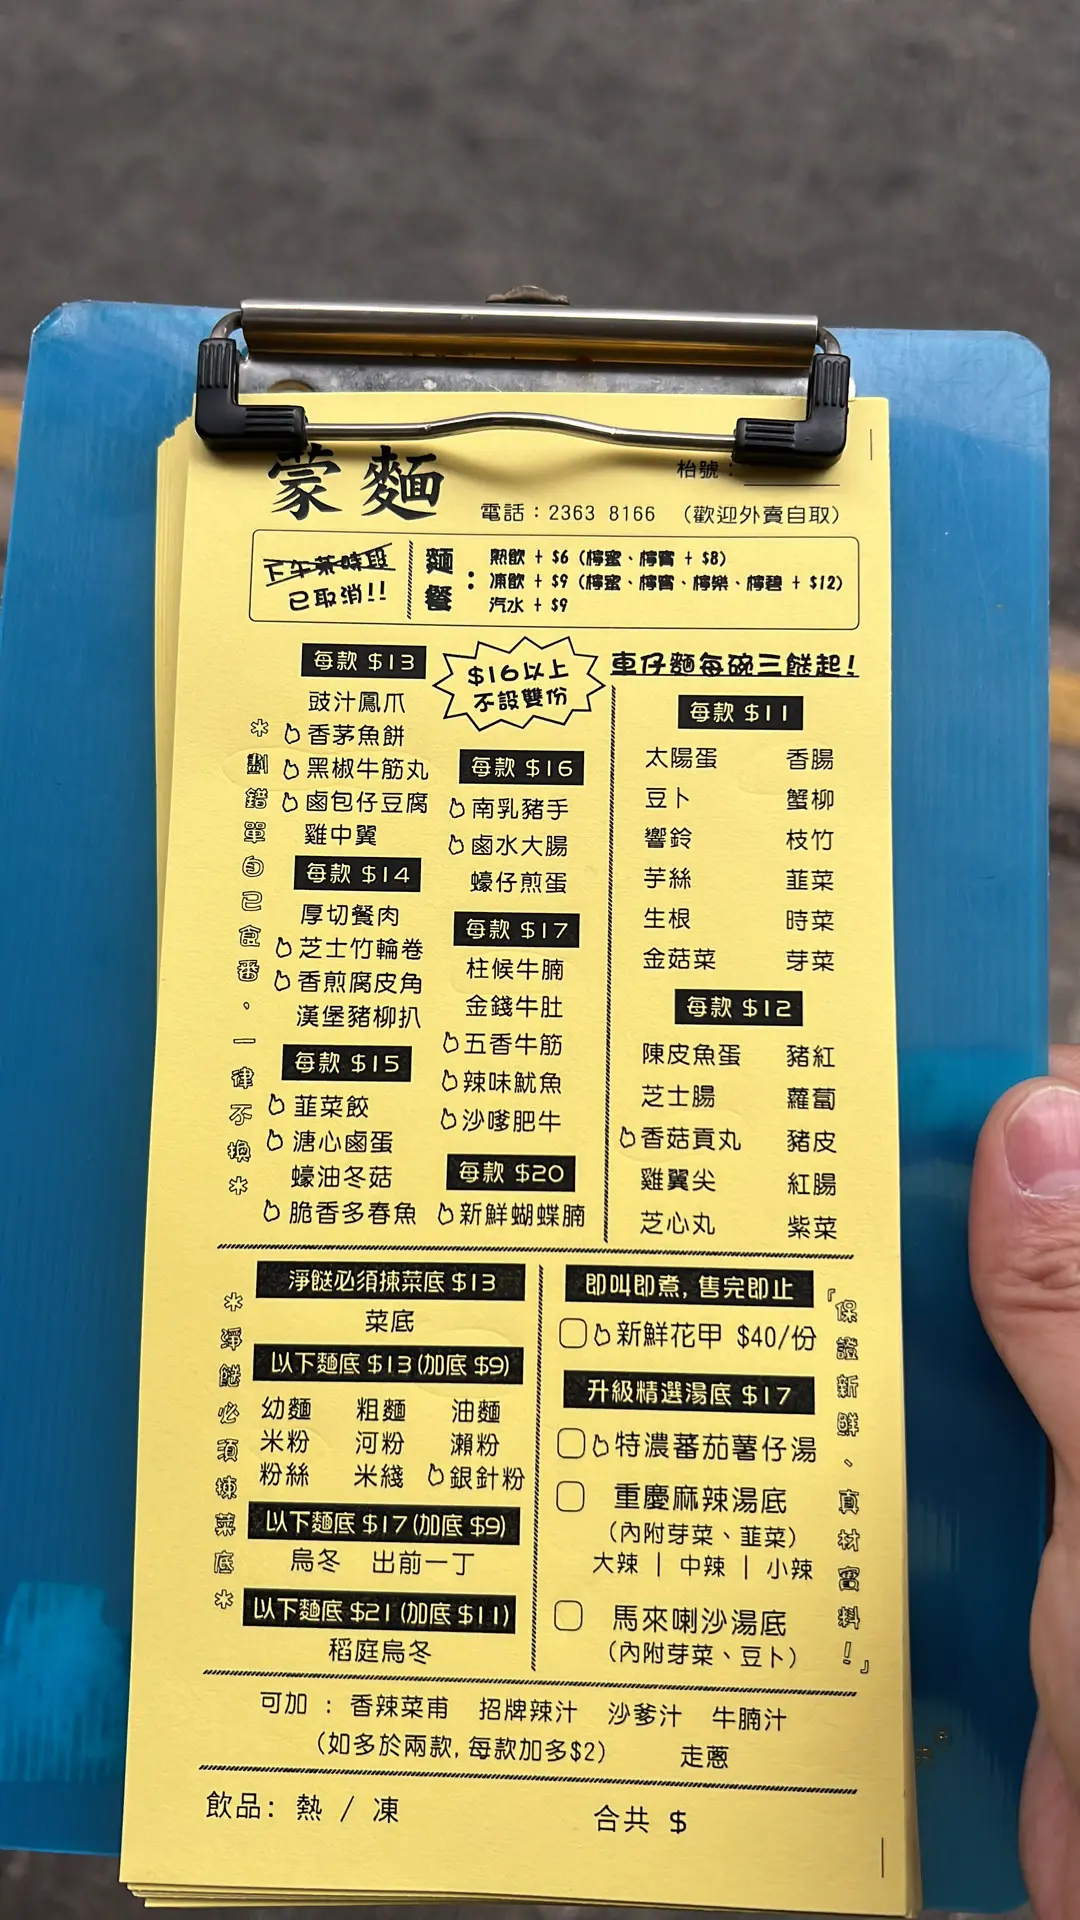 蒙麵
枱號：
電話：2363 8166 （歡迎外賣自取）
下午茶時段
已取消!!
麵餐：
熱飲 + $6 (檸蜜、檸賓 + $8)
凍飲 + $9 (檸蜜、檸賓、檸樂、檸碧 + $12)
汽水 + $9
每款 $13
豉汁鳳爪
香茅魚餅
黑椒牛筋丸
鹵包仔豆腐
雞中翼
每款 $14
厚切餐肉
芝士竹輪卷
香煎腐皮角
漢堡豬柳扒
每款 $15
韮菜餃
溏心鹵蛋
蠔油冬菇
脆香多春魚
＊劃錯單自己食番，一律不換＊
$16以上
不設雙份
每款 $16
南乳豬手
鹵水大腸
蠔仔煎蛋
每款 $17
柱候牛腩
金錢牛肚
五香牛筋
辣味魷魚
沙嗲肥牛
每款 $20
新鮮蝴蝶腩
車仔麵每碗三餸起!
每款 $11
太陽蛋 香腸
豆卜 蟹柳
響鈴 枝竹
芋絲 韮菜
生根 時菜
金菇菜 芽菜
每款 $12
陳皮魚蛋 豬紅
芝士腸 蘿蔔
香菇貢丸 豬皮
雞翼尖 紅腸
芝心丸 紫菜
淨餸必須揀菜底 $13
菜底
以下麵底 $13 (加底 $9)
幼麵 粗麵 油麵
米粉 河粉 瀨粉
粉絲 米綫 銀針粉
以下麵底 $17 (加底 $9)
烏冬 出前一丁
以下麵底 $21 (加底 $11)
稻庭烏冬
＊淨餸必須揀菜底＊
即叫即煮, 售完即止
新鮮花甲 $40/份
升級精選湯底 $17
特濃蕃茄薯仔湯
重慶麻辣湯底
（內附芽菜、韮菜）
大辣 | 中辣 | 小辣
馬來喇沙湯底
（內附芽菜、豆卜）
『保證新鮮、真材實料！』
可加 : 香辣菜甫 招牌辣汁 沙爹汁 牛腩汁
（如多於兩款, 每款加多$2） 走蔥
飲品: 熱 / 凍
合共 $